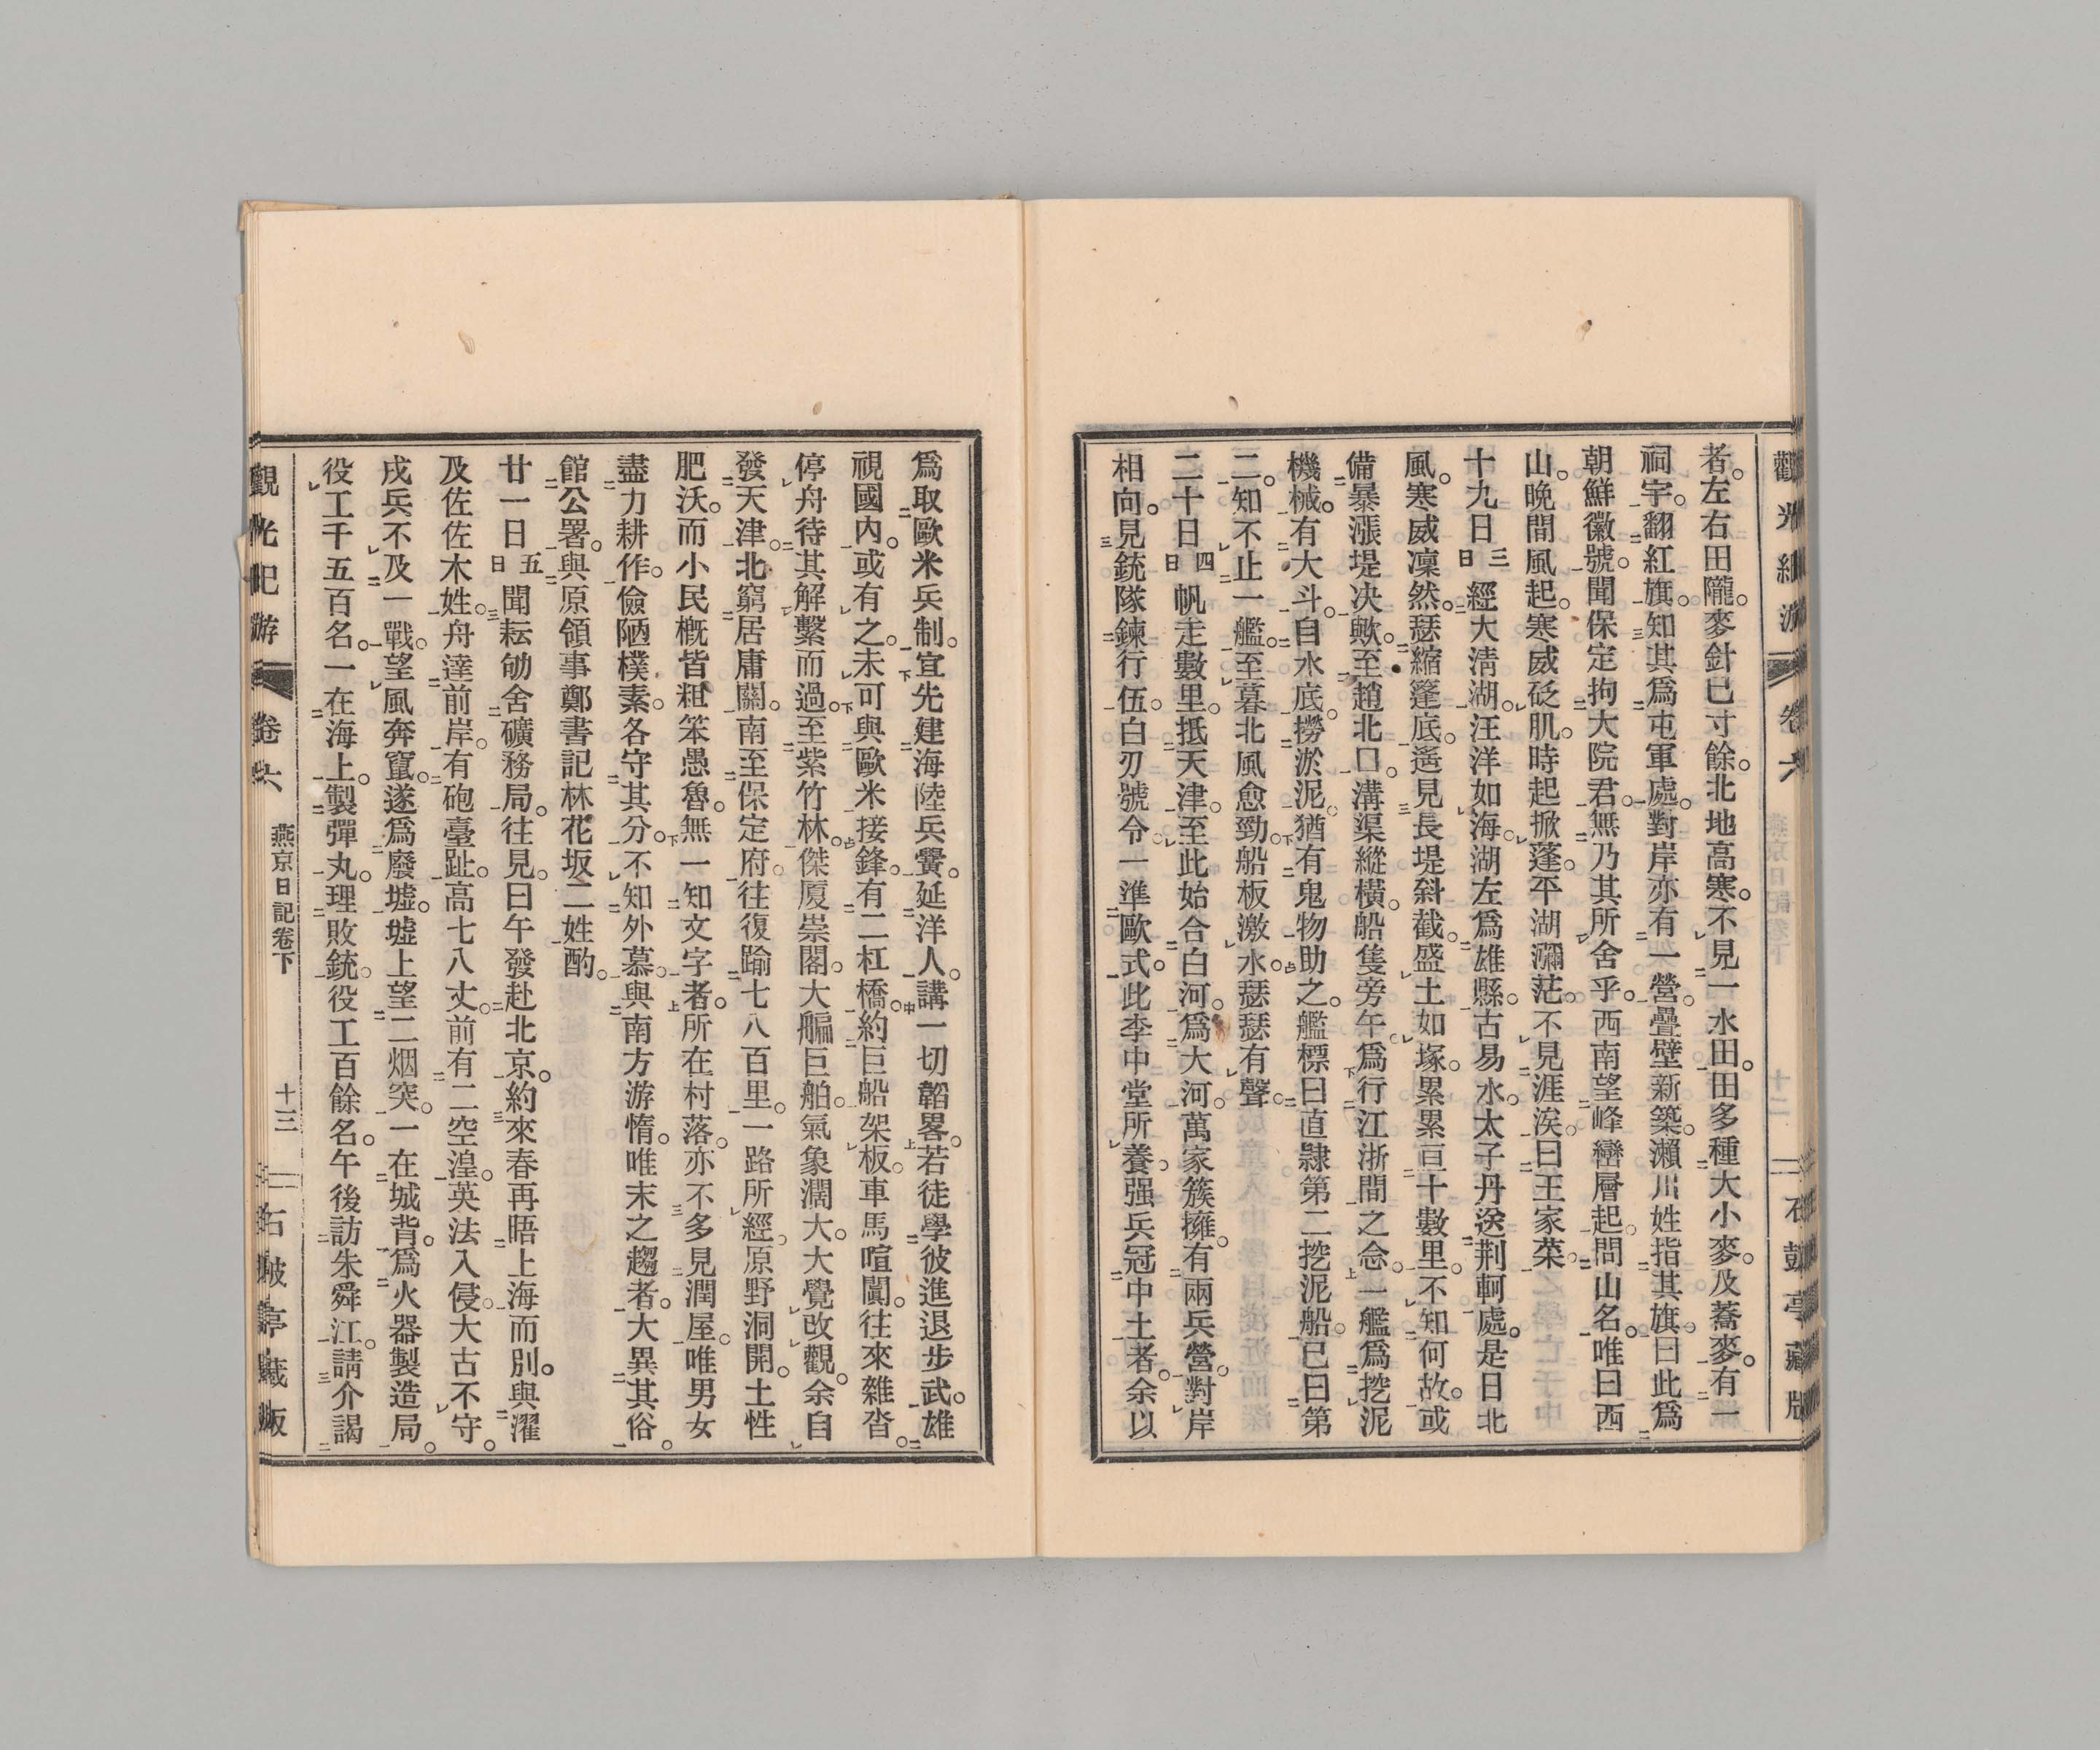 觀光紀游 卷六 石鼓亭藏版
者。左右田隴。麥針已寸餘。北地高寒。不見一水田。田多種大小麥。及蕎麥。有一
祠宇。翻紅旗。知其爲屯軍處。對岸亦有一營。疊壁新築。瀨川姓指其旗。曰此爲
朝鮮徽號。聞保定拘大院君。無乃其所舍乎。西南望峰巒層起。問山名。唯曰西
山。晚間風起。寒威砭肌。時起掀蓬。平湖瀰茫。不見涯涘。曰王家菜。
十九日三日經大淸湖。汪洋如海。湖左爲雄縣。古易水。太子丹送荆軻處。是日北
風。寒威凜然。瑟縮篷底。遙見長堤斜截。盛土如塚。累累亘十數里。不知何故。或
備暴漲堤决歟。至趙北口。溝渠縱橫。船隻旁午。爲行江浙間之念。一艦爲挖泥
機械。有大斗。自水底。撈淤泥。猶有鬼物助之。艦標曰直隷第二挖泥船。已曰第
二。知不止一艦。至暮北風愈勁。船板激水。瑟瑟有聲。
二十日四日帆走數里。抵天津。至此始合白河。爲大河。萬家簇擁。有兩兵營。對岸
相向。見銃隊鍊行伍。白刃號令一準歐式。此李中堂所養。强兵冠中土者。余以
爲取歐米兵制。宜先建海陸兵黌。延洋人。講一切韜畧。若徒學彼進退步武。雄
視國內。或有之。未可與歐米接鋒。有二杠橋。約巨船架板。車馬喧闐。往來雜沓。
停舟待其解繫而過。至紫竹林。傑厦崇閣。大艑巨舶。氣象濶大。大覺改觀。余自
發天津。北窮居庸關。南至保定府。往復踰七八百里。一路所經。原野洞開。土性
肥沃。而小民槪皆粗笨愚魯。無一知文字者。所在村落。亦不多見潤屋。唯男女
盡力耕作。儉陋樸素。各守其分。不知外慕。與南方游惰。唯末之趨者。大異其俗。
館公署。與原領事鄭書記林花坂二姓酌。
廿一日五日聞耘劬舍礦務局。往見。曰午發赴北京。約來春再晤上海而別。與濯
及佐佐木姓。舟達前岸。有砲臺趾。高七八丈。前有二空湟。英法入侵。大古不守。
戍兵不及一戰。望風奔竄。遂爲廢墟。墟上望二烟突。一在城背。爲火器製造局。
役工千五百名。一在海上。製彈丸。理敗銃。役工百餘名。午後訪朱舜江。請介謁
觀光紀游 卷六 燕京日記卷下 十三 石鼓亭藏版